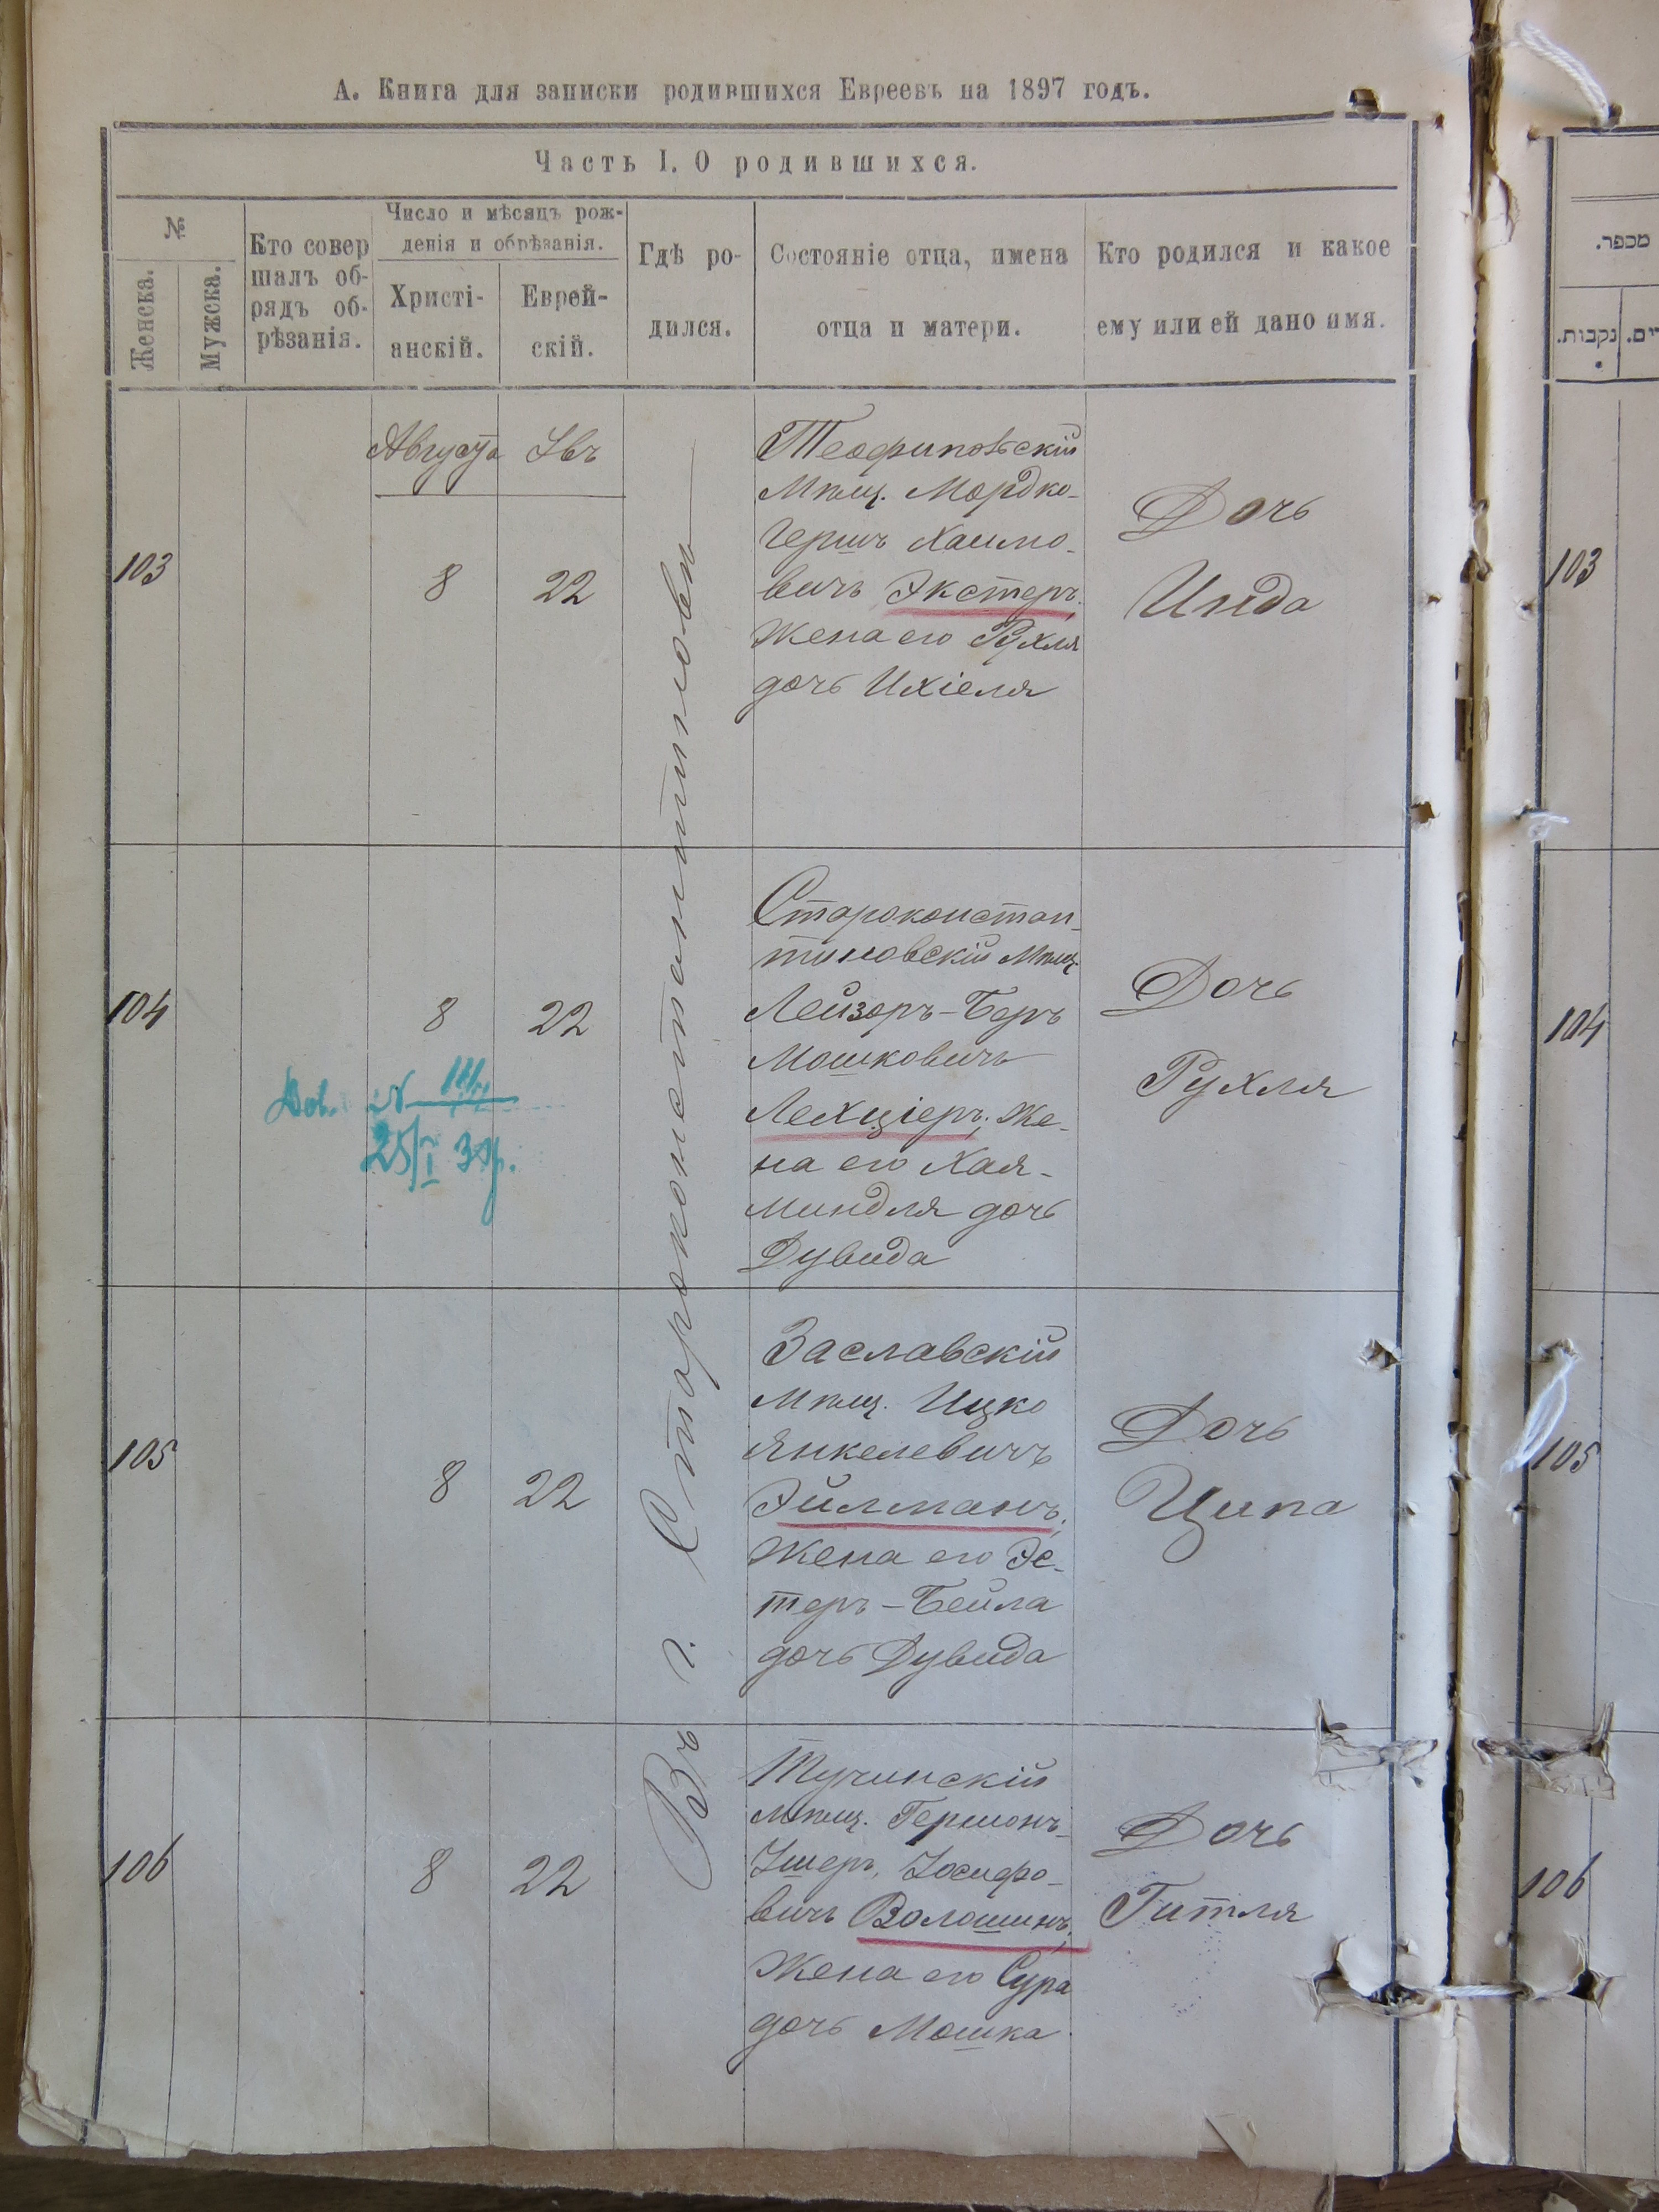 А. Книга для записки родившихся Евреевъ на 1897 годъ.
Часть I. О родившихся.
№
Женска.
Мужска.
Кто совер
шалъ об-
рядъ об-
рѣзанія.
Число и мѣсяцъ рож-
денія и обрѣзанія.
Христі-
анскій.
Еврей-
скій.
Гдѣ ро-
дился.
Состояніе отца, имена
отца и матери.
Кто родился и какое
ему или ей дано имя.
מכפר.
נקבות.
Въ г. Староконстантиновѣ
Августа
103
8
22
Теофипольскій
Мѣщ. Мордко-
Гершъ Хаимо-
вичъ Экстеръ,
Жена его Рухля
дочь Ихіеля
Дочь
Инда
103
104
8
22
Староконстан-
тиновскій Мѣщ.
Лейзоръ-Беръ
Мошковичъ
Лехціеръ, Же-
на его Хая-
Миндля дочь
Дувида
Дочь
Рухля
104
105
8
22
Заславскій
Мѣщ. Ицко
Янкелевичъ
Эйлманъ,
Жена его Эс-
теръ-Бейла
дочь Дувида
Дочь
Ципа
105
106
8
22
Тучинскій
Мѣщ. Гершонъ-
Ушеръ Іосифо-
вичъ Волошинъ,
Жена его Сура
дочь Мошка
Дочь
Гитля
106